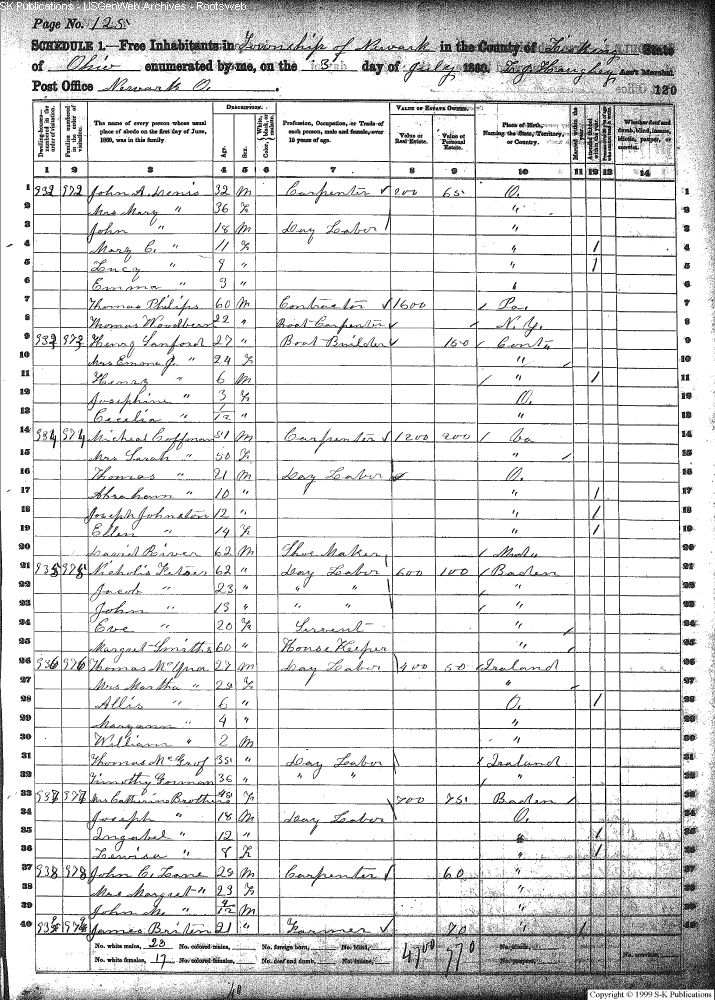 SK Publications - USGenWeb Archives - Rootsweb
Page No. 125
SCHEDULE 1.—Free Inhabitants in Township of Newark in the County of Licking State
of Ohio enumerated by me, on the 3 day of July 1860. Ass't Marshal
Post Office Newark O. 120
Dwelling-houses—numbered in the order of visitation.
Families numbered in the order of visitation.
The name of every person whose usual place of abode on the first day of June, 1860, was in this family.
DESCRIPTION.
Age.
Sex.
Color, White, black, or mulatto.
Profession, Occupation, or Trade of each person, male and female, over 15 years of age.
VALUE OF ESTATE OWNED.
Value of Real Estate.
Value of Personal Estate.
Place of Birth, Naming the State, Territory, or Country.
Married within the year.
Attended School within the year.
Whether deaf and dumb, blind, insane, idiotic, pauper, or convict.
1 2 3 4 5 6 7 8 9 10 11 12 13 14
1 932 972 John A. Lenis 32 M Carpenter 200 65 O.
2 Mrs Mary " 36 F "
3 John " 18 M Day Labor "
4 Mary C. " 11 F " /
5 Lucy " 9 " " /
6 Emma " 9 "
7 Thomas Philips 60 M Contractor 1600 / Pa.
8 Thomas Woodbern 22 " Boat Carpenter / N.Y.
9 933 973 Henry Sanford 27 " Boat Builder 150 / Cont.
10 Mrs Emma J. " 24 F " /
11 Henry " 6 M / " /
12 Josephine " 3 F O.
13 Cecelia " 1/12 " "
14 934 974 Micheal Coffman 51 M Carpenter 1200 200 / Va
15 Mrs Sarah " 50 F " /
16 Thomas " 21 M Day Labor O.
17 Abraham " 10 " " /
18 Joseph Johnston 12 " " /
19 Ellen " 14 F " /
20 David River 62 M Shoe Maker / Md.
21 935 975 Nicholis Ketser 62 " Day Labor 600 100 / Baden
22 Jacob " 23 " " " / "
23 John " 13 " " " / "
24 Eve " 20 F Servent " /
25 Margaret Smiths 60 " House Keeper " /
26 936 976 Thomas 27 M Day Labor 400 50 / Iraland
27 Mrs Martha " 29 F " /
28 Allis " 6 " O. /
29 Maryann " 4 " "
30 William " 2 M "
31 Thomas McGrof 35 " Day Labor / Iraland
32 Timothy Gorman 36 " " " / "
33 937 977 Mrs Catherine Brothers 48 F 700 75 Baden /
34 Joseph " 18 M Day Labor O.
35 Ingabel " 12 " " /
36 Lewisa " 8 F " /
37 938 978 John C. Lane 28 M Carpenter 60 "
38 Mrs Margret " 23 F "
39 John M. " 9/12 M "
40 939 979 James Briten 21 " Farmer 70 " /
No. white males, 23 No. colored males, No. foreign born, No. blind, 4700 770 No. idiotic, No. convicts,
No. white females, 17 No. colored females, No. deaf and dumb, No. insane, No. paupers,
40
Copyright © 1999 S-K Publications